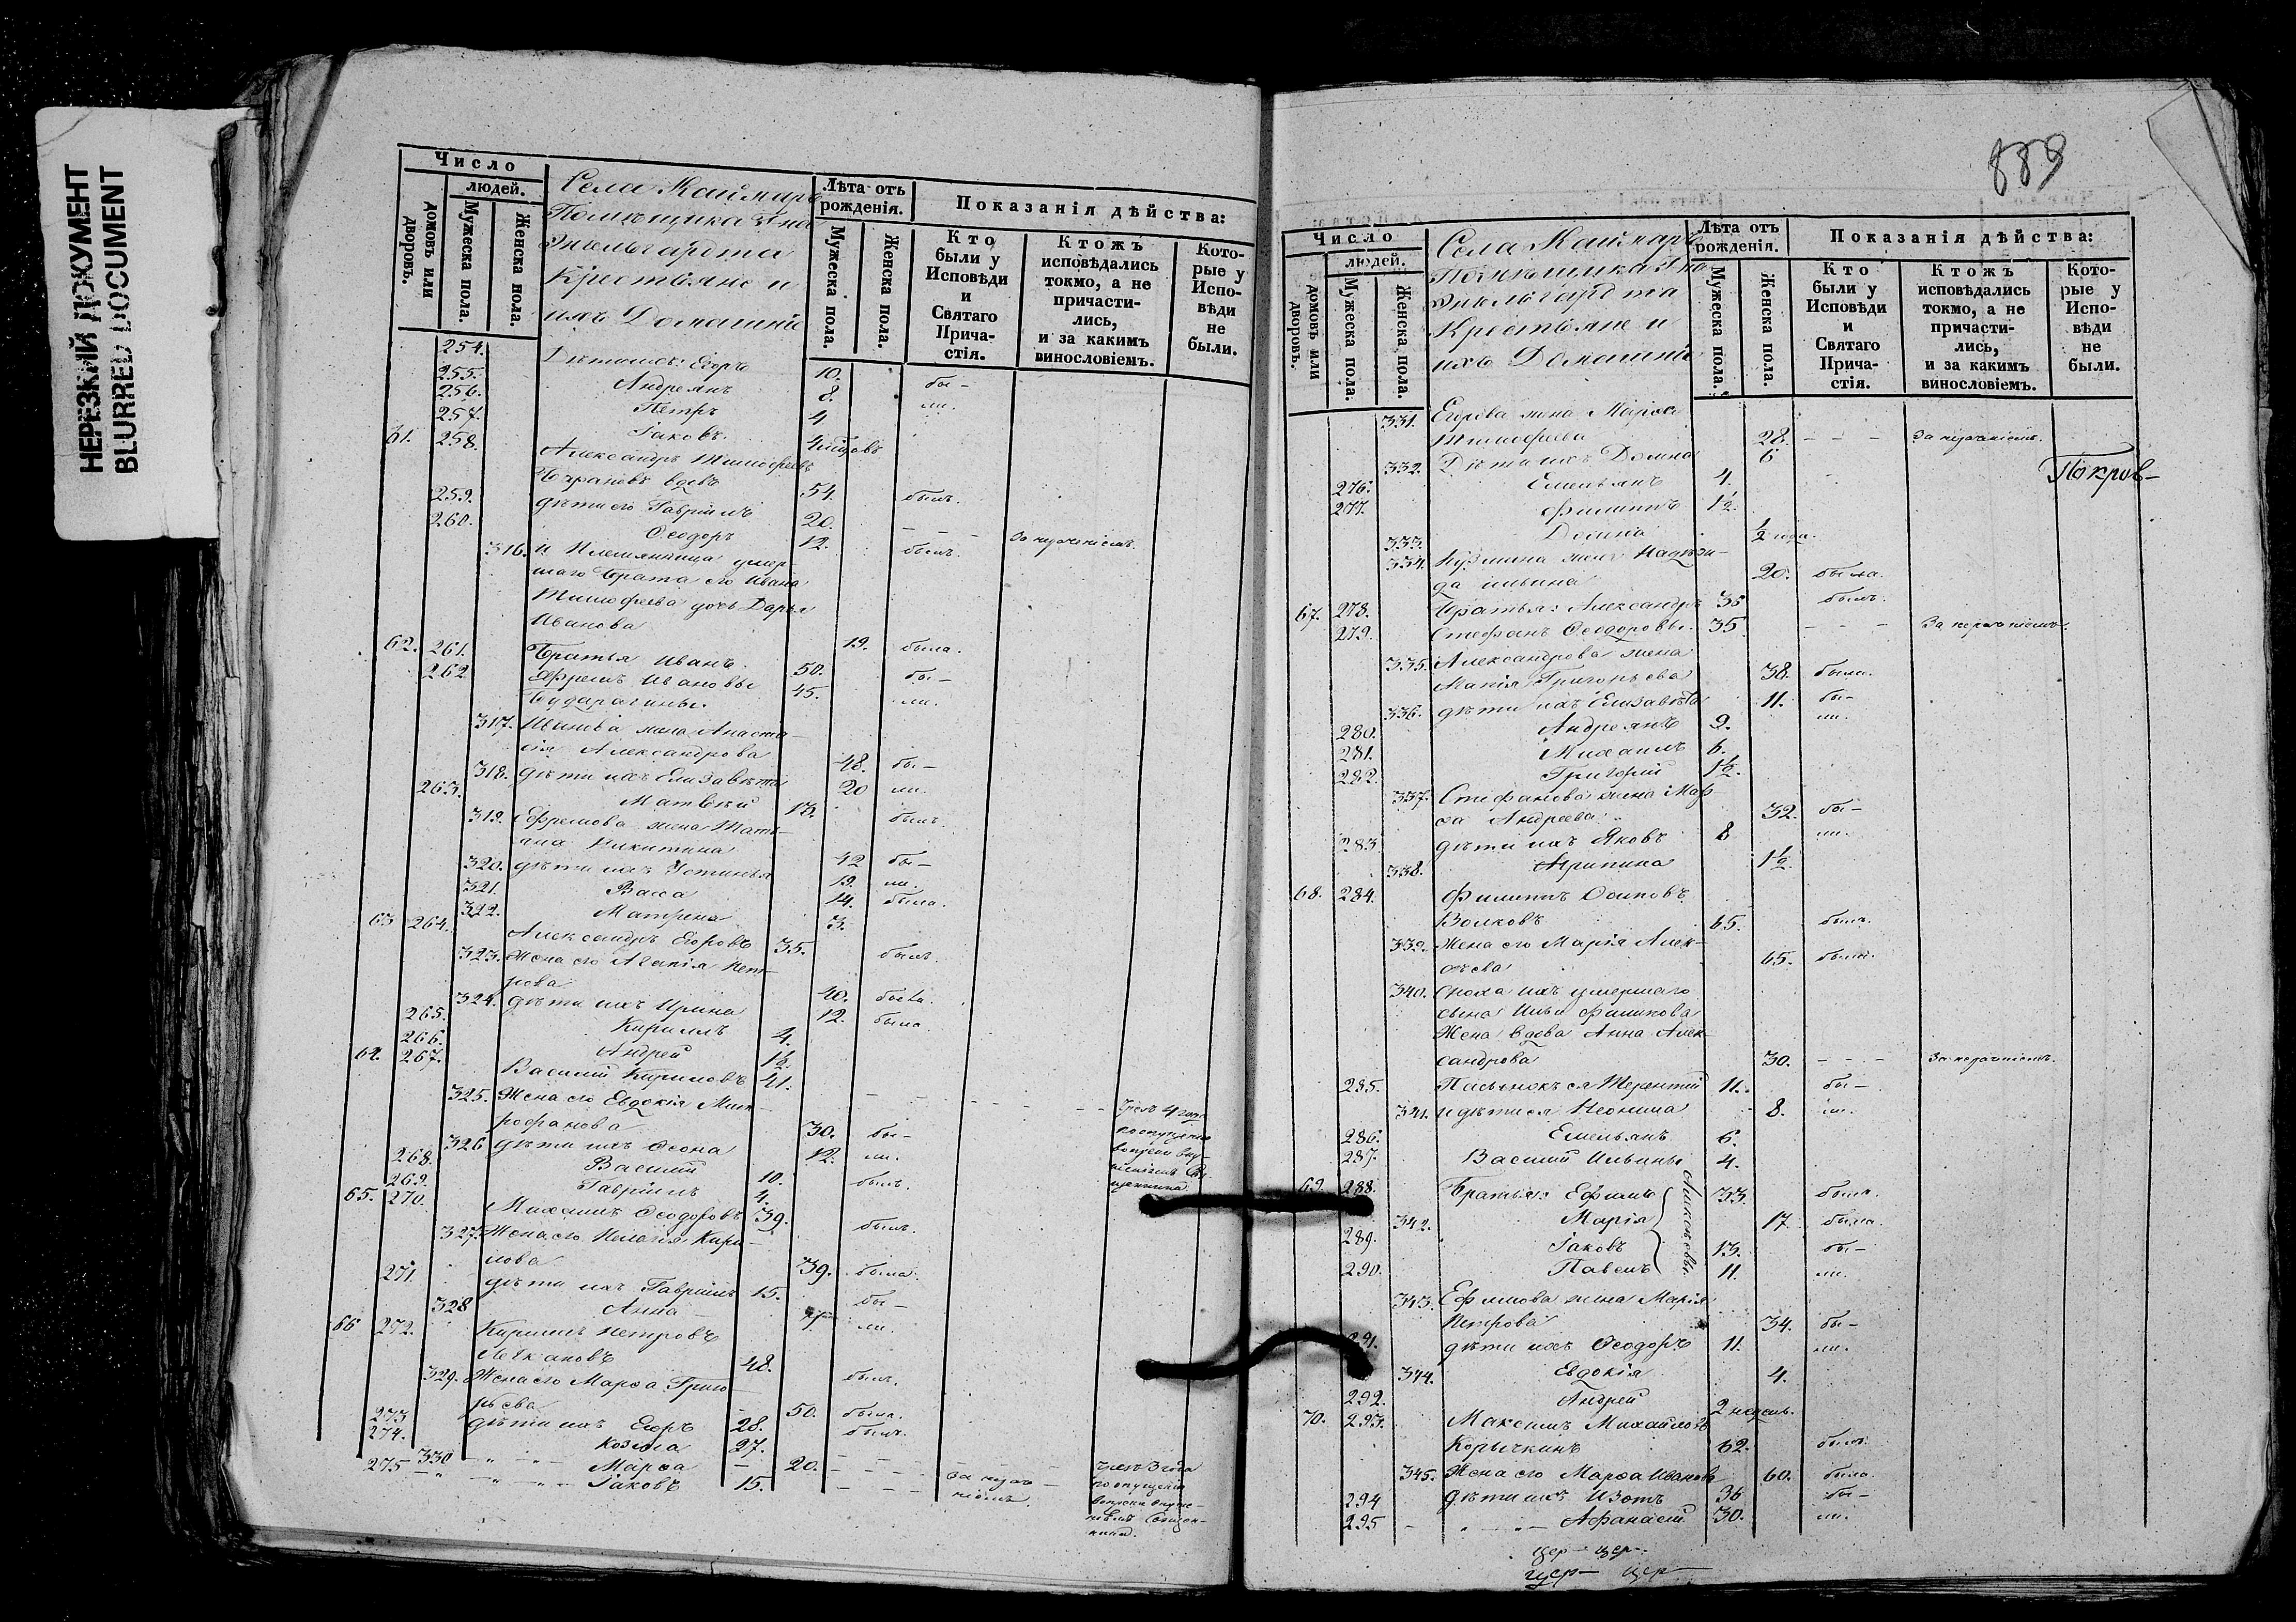 НЕРЕЗКИЙ ДОКУМЕНТ
BLURRED DOCUMENT
Число
людей.
домовъ или дворовъ.
Мужеска пола.
Женска пола.
Села Каймаръ
Помѣщика
Энгельгардта
Крестьяне и
ихъ Домашніе
Лѣта отъ рожденія.
Мужеска пола.
Женска пола.
Показанія дѣйства:
Кто были у Исповѣди и Святаго Прича-стія.
Ктожъ исповѣдались токмо, а не причасти-лись, и за какимъ винословіемъ.
Кото-рые у Испо-вѣди не были.
254. Егоръ 10. бы-
255. Андреянъ 8. ли.
256. Петръ 4
257. Іаковъ
61. 258. Александръ Тимофеевъ
вдовъ 54. былъ.
259. дѣти его Гавріилъ 20. - - За
260. Ѳеодоръ 12. былъ.
316. и Племянница умер-
шаго брата его Ивана
Тимофеева дочь Дарья
Иванова 19. была.
62. 261. Братья Иванъ 50. бы-
262 Ефремъ Ивановы 45. ли.
317. Иванова жена Анаста-
сія Александрова 48. бы-
318. дѣти ихъ Елизавета 20 ли.
263. Матвѣй 13. былъ.
319. Ефремова жена Тать-
яна Никитина 42 бы-
320. дѣти ихъ Устинья 19. ли.
321. Васса 14. была.
322. Матрена 3.
63 264. Александръ Егоровъ 35. былъ.
323. Жена его Пет-
рова 40. была.
324. дѣти ихъ Ирина 12. была.
265. Кирилъ 4.
266. Андрей 1½.
64. 267. Василій Кириловъ 41. - - -
325. Жена его Евдокія Мит-
рофанова 30. бы-
326 дѣти ихъ 12. ли.
268. Василій 10. былъ.
269. Гавріилъ 4.
65. 270. Михаилъ Ѳеодоровъ 39. былъ.
327. Жена его Пелагія Кири-
лова 39. была.
271. дѣти ихъ Гавріилъ 15. бы-
328 Анна ли.
66 272. Кирилъ Петровъ
48. былъ.
329. Жена его Марѳа Григо-
рьева 50. была.
273 дѣти ихъ Егоръ 28. былъ.
274. Козьма 27. - -
330 Марѳа 20. - - -
275 Іаковъ 15. - - -
889
Число
людей.
домовъ или дворовъ.
Мужеска пола.
Женска пола.
Села Каймаръ
Помѣщика
Энгельгардта
Крестьяне и
ихъ Домашніе
Лѣта отъ рожденія.
Мужеска пола.
Женска пола.
Показанія дѣйства:
Кто были у Исповѣди и Святаго Прича-стія.
Ктожъ исповѣдались токмо, а не причасти-лись, и за какимъ винословіемъ.
Кото-рые у Испо-вѣди не были.
331. Егорова жена Марѳа
Тимофеева 28. - - -
332. Дѣти ихъ Домна 6
Покров-
276. Емельянъ 4.
277. Филиппъ 1½.
333. Домна ½ года.
334. Кузмина жена Надеж-
да Ильина 20. была.
67. 278. Братья: Александръ 35 былъ.
279. Стефанъ Ѳеодоровы. 35. - - -
335. Александрова жена
Марія Григорьева 38. была.
336. дѣти ихъ Елизавета 11. бы-
280. Андреянъ 9. ли.
281. Михаилъ 6.
282. Григорій 1½.
337. Стефанова жена Мар-
ѳа Андреева 32. бы-
283. дѣти ихъ Яковъ 8 ли.
338. Агрипина 1½.
68. 284. Филиппъ Осиповъ
Волковъ 65. былъ.
339. Жена его Марія Алек-
сѣева 65. была.
340. Сноха ихъ умершаго
сына Ильи Филипова
Жена вдова Анна Алек-
сандрова 30. - - -
285. Пасынокъ ея Терентій 11. бы-
341. и дѣти ея Неонила 8. ли.
286. Емельянъ 6.
287. Василій Ильины 4.
69. 288. Братья: Ефимъ 33. былъ.
342. Марія 17. была.
289. Іаковъ 13. бы-
290. Павелъ 11. ли.
343. Ефимова жена Марія
Петрова 34. бы-
291. дѣти ихъ Ѳеодоръ 11. ли.
344. Евдокія 4.
292. Андрей 2 недель.
70. 293. Максимъ Михайловъ
Корычкинъ 62. былъ.
345. Жена его Марѳа Иванова 60. была.
294 дѣти ихъ Изотъ 36 бы-
295 Афанасій 30. ли.
цер- цер-
цер- цер